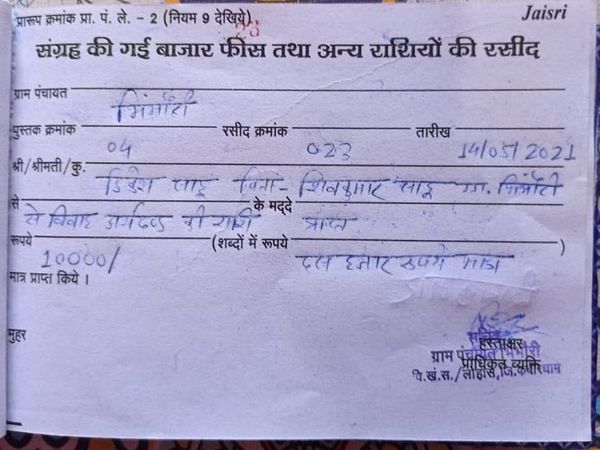 प्रारूप क्रमांक प्रा. पं. ले. - 2 (नियम 9 देखिये)
Jaisri
संग्रह की गई बाजार फीस तथा अन्य राशियों की रसीद
ग्राम पंचायत भिंभौरी
पुस्तक क्रमांक 04 रसीद क्रमांक 023 तारीख 14/05/2021
श्री/श्रीमती/कु. साहू पिता - शिवकुमार साहू ग्रा. भिंभौरी
से से विवाह अर्थदण्ड की राशी के मद्दे प्राप्त
रूपये 10000/ (शब्दों में रूपये दस हजार रुपये मात्र)
मात्र प्राप्त किये ।
मुहर
सचिव
हस्ताक्षर
ग्राम पंचायत भिंभौरी
प्राधिकृत व्यक्ति